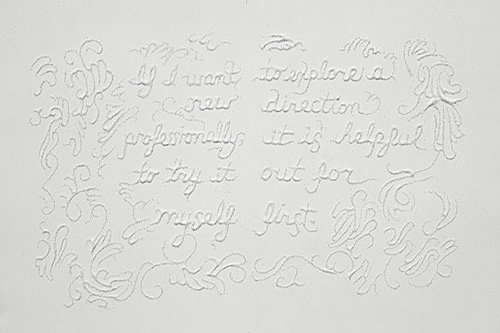 If I want to explore a
new direction
professionally, it is helpful
to try it out for
myself first.